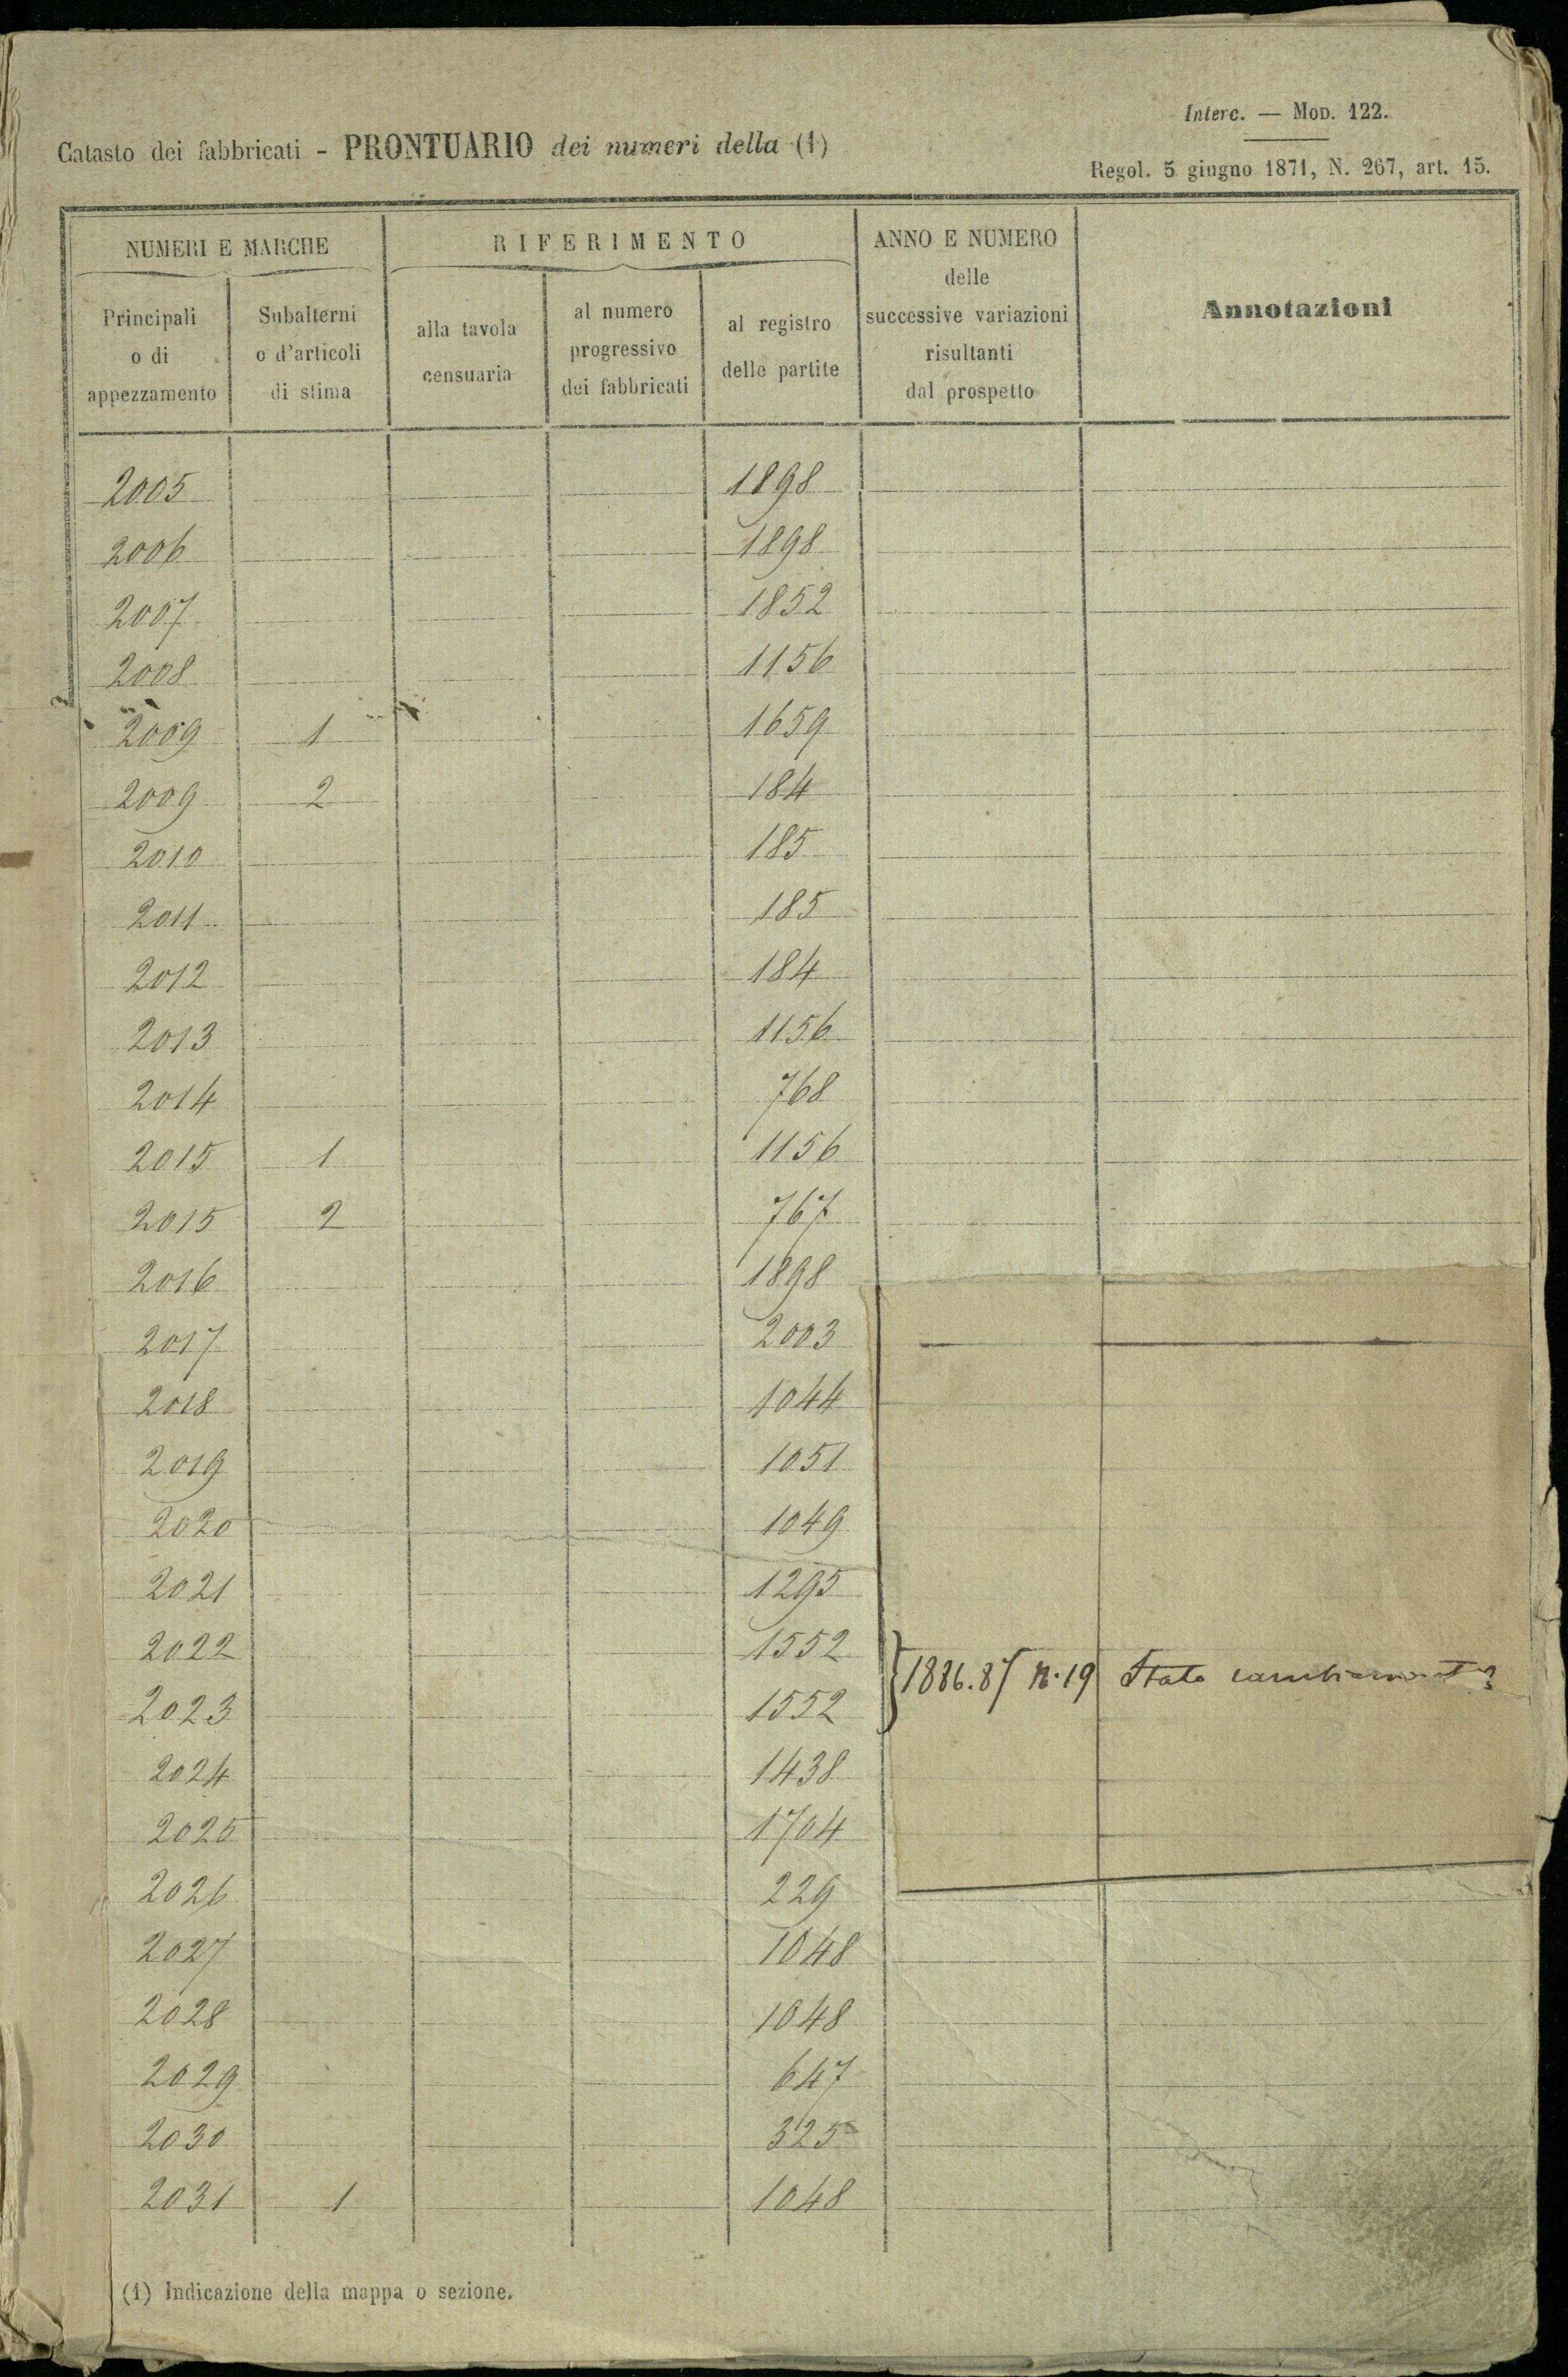 Interc. — Mod. 122.
Catasto dei fabbricati - PRONTUARIO dei numeri della (1)
Regol. 5 giugno 1871, N. 267, art. 15.
NUMERI E MARCHE
RIFERIMENTO
ANNO E NUMERO
delle
successive variazioni
risultanti
dal prospetto
Annotazioni
Principali
o di
appezzamento
Subalterni
o d'articoli
di stima
alla tavola
censuaria
al numero
progressivo
dei fabbricati
al registro
delle partite
2005 1898
2006 1898
2007 1852
2008 1156
2009 1 1659
2009 2 184
2010 185
2011 185
2012 184
2013 1156
2014 768
2015 1 1156
2015 2 767
2016 1898
2017 2003
2018 1044
2019 1051
2020 1049
2021 1295
2022 1552
1886.87 n.19 Stato
2023 1552
2024 1438
2025 1704
2026 229
2027 1048
2028 1048
2029 647
2030 325
2031 1 1048
(1) Indicazione della mappa o sezione.